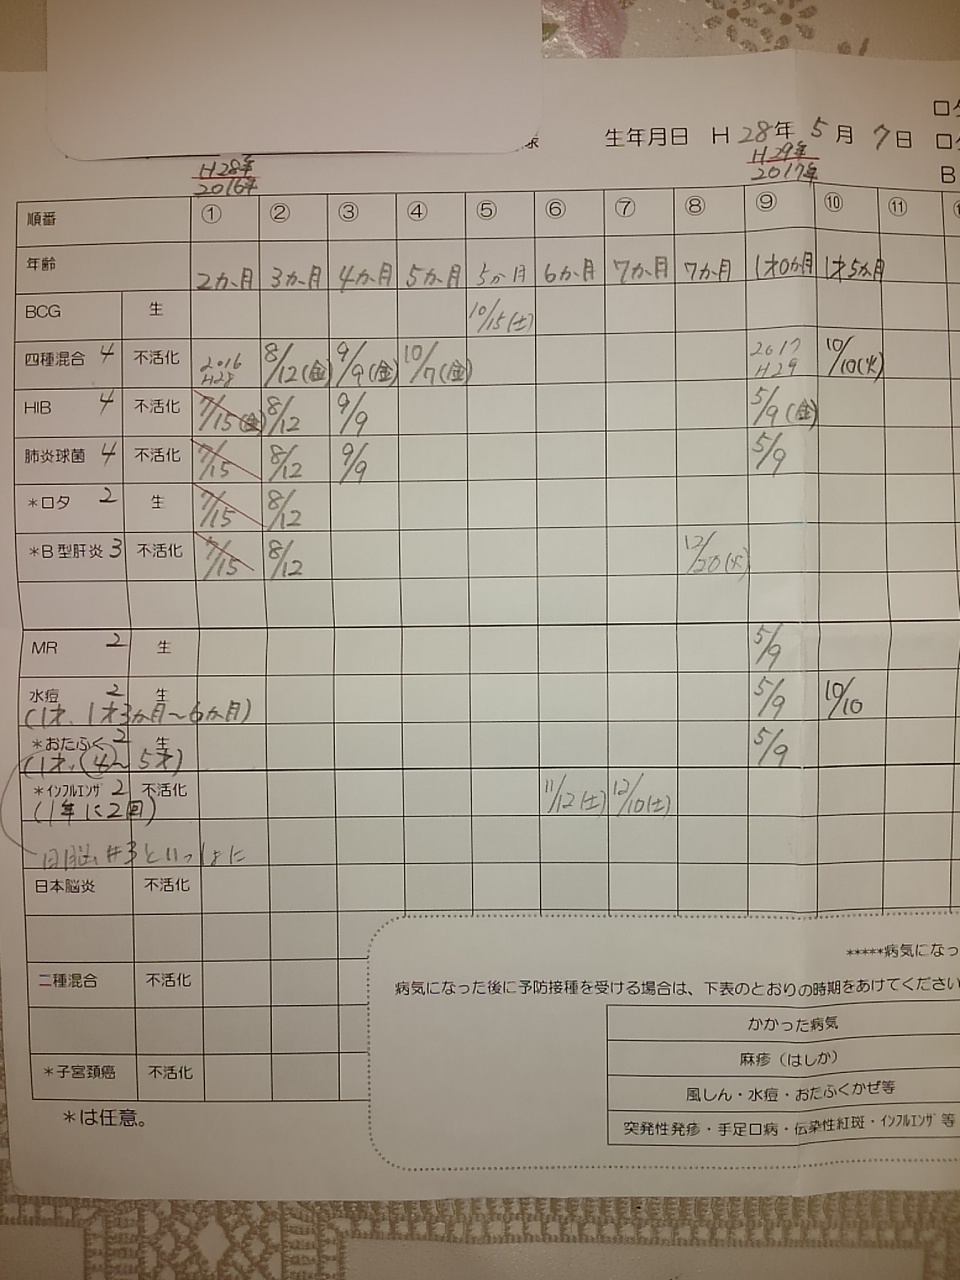 ロタ
生年月日 H 28年 5月 7日 ロタ
H28年
2016年
H29年
2017年
B
順番 ① ② ③ ④ ⑤ ⑥ ⑦ ⑧ ⑨ ⑩ ⑪
年齢 2か月 3か月 4か月 5か月 5か月 6か月 7か月 7か月 1才0か月 1才5か月
BCG 生 10/15(土)
四種混合 4 不活化 2016 H28 8/12(金) 9/9(金) 10/7(金) 2017 H29 10/10(火)
HIB 4 不活化 7/15(金) 8/12 9/9 5/9(金)
肺炎球菌 4 不活化 7/15 8/12 9/9 5/9
*ロタ 2 生 7/15 8/12
*B型肝炎 3 不活化 7/15 8/12 12/20(火)
MR 2 生 5/9
水痘 2 生 5/9 10/10
(1才、1才3か月～6か月)
*おたふく 2 生 5/9
(1才、4～5才)
*インフルエンザ 2 不活化 11/12(土) 12/10(土)
(1年に2回)
日脳#3といっしょに
日本脳炎 不活化
二種混合 不活化
*子宮頚癌 不活化
*は任意。
*****病気になっ
病気になった後に予防接種を受ける場合は、下表のとおりの時期をあけてください
かかった病気
麻疹（はしか）
風しん・水痘・おたふくかぜ等
突発性発疹・手足口病・伝染性紅斑・インフルエンザ等